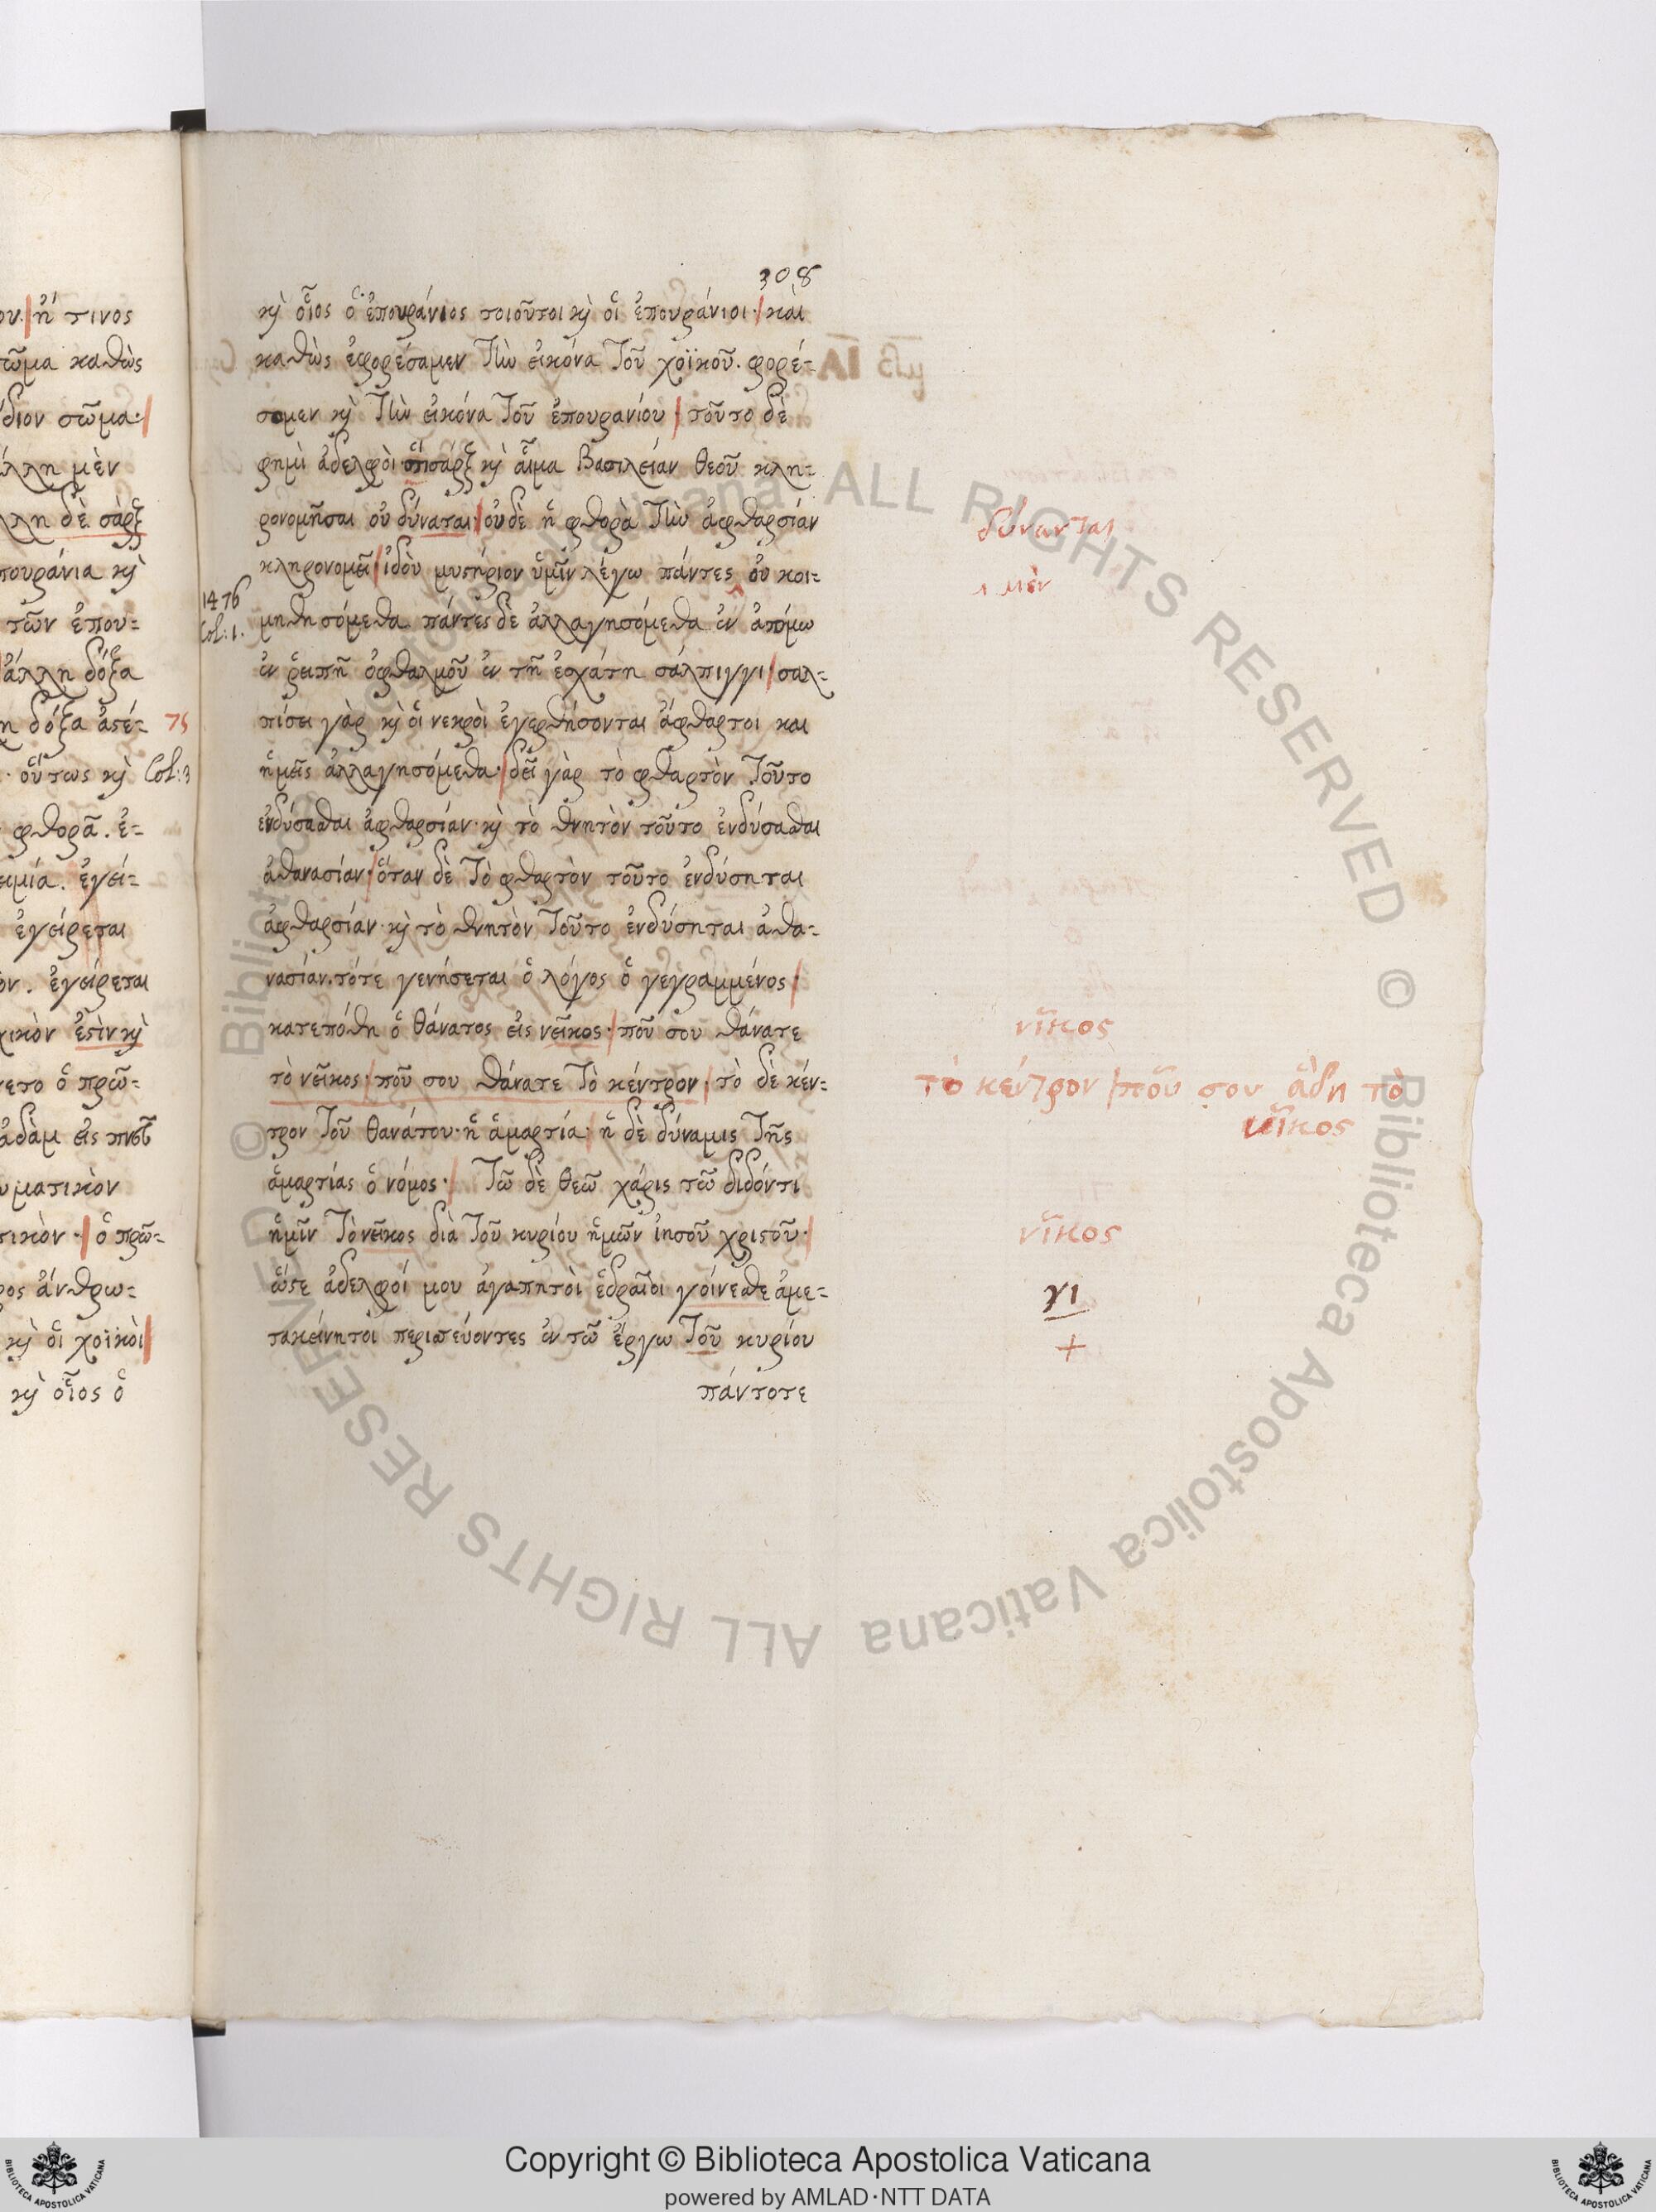 ον· ἤ τινος
σῶμα καθὼς
ίδιον σῶμα·
ἄλλη μὲν
λλη δὲ σὰρξ
πουράνια κὶ
τῶν ἐπου=
ἄλλη δόξα
η δόξα ἀϛέ=
75
· οὕτως κὶ
Col: 3
φθορᾶ. ἐ=
ἐγεί=
ἐγείρεται
ον. ἐγείρεται
χικὸν ἐϛὶν κὶ
νετο ὁ πρῶ=
ἀδὰμ εἰς
υματικὸν
σικὸν· ὁ πρῶ=
ρος ἄνθρω=
κὶ οἱ χοϊκὸι
κὶ οἷος ὁ
308
κὶ οἷος ὁ ἐπουράνιος τοιοῦτοι κὶ οἱ ἐπουράνιοι· καὶ
καθὼς ἐφορέσαμεν τὴν εἰκόνα τοῦ χοϊκοῦ. φορέ=
σομεν κὶ τὴν εἰκόνα τοῦ ἐπουρανίου τοῦτο δὲ
φημὶ ἀδελφοὶ ὅτι σάρξ κὶ αἷμα βασιλείαν θεοῦ κλη=
ρονομῆσαι οὐ δύναται· οὐδὲ ἡ φθορὰ τὴν ἀφθαρσίαν
δύνανται
κληρονομεῖ· ἰδοὺ μυϛήριον ὑμῖν λέγω πάντες οὐ κοι=
μὲν
1476
Col: 1.
μηθησόμεθα πάντες δὲ ἀλλαγησόμεθα ἐν ἀτόμω
ἐν ῥειπῆ ὀφθαλμοῦ ἐν τῆ ἐσχάτη σάλπιγγι σαλ=
πίσει γὰρ κὶ οἱ νεκροὶ ἐγερθήσονται ἄφθαρτοι και
ἡμεῖς ἀλλαγησόμεθα· δεῖ γὰρ τὸ φθαρτὸν τοῦτο
ἐνδύσασθαι ἀφθαρσίαν· κὶ τὸ θνητὸν τοῦτο ἐνδύσασθαι
ἀθανασίαν· ὅταν δὲ τὸ φθαρτὸν τοῦτο ἐνδύσηται
ἀφθαρσίαν· κὶ τὸ θνητὸν τοῦτο ἐνδύσηται ἀθα=
νασίαν. τότε γενήσεται ὁ λόγος ὁ γεγραμμένος·
κατεπόθη ὁ θάνατος εἰς νεῖκος· ποῦ σου θάνατε
νῖκος
τὸ νεῖκος· ποῦ σου θάνατε τὸ κέντρον· τὸ δὲ κέν=
τὸ κέντρον ποῦ σου ἅδη τὸ
νῖκος
τρον τοῦ θανάτου· ἡ ἁμαρτία· ἡ δὲ δύναμις τῆς
ἁμαρτίας ὁ νόμος· Τῶ δὲ θεῶ χάρις τῶ διδόντι
ἡμῖν τὸ νεῖκος διὰ τοῦ κυρίου ἡμῶν ἰησοῦ χριϛοῦ·
νῖκος
ὥϛε ἀδελφοί μου ἀγαπητοὶ ἑδραῖοι γοίνεσθε ἀμε=
γι
τακείνητοι περισεύοντες ἐν τῶ ἔργω τοῦ κυρίου
+
πάντοτε
© Biblioteca Apostolica Vaticana ALL RIGHTS RESERVED © Biblioteca Apostolica Vaticana ALL RIGHTS RESERVED
Copyright © Biblioteca Apostolica Vaticana
powered by AMLAD·NTT DATA
BIBLIOTECA APOSTOLICA VATICANA
BIBLIOTECA APOSTOLICA VATICANA